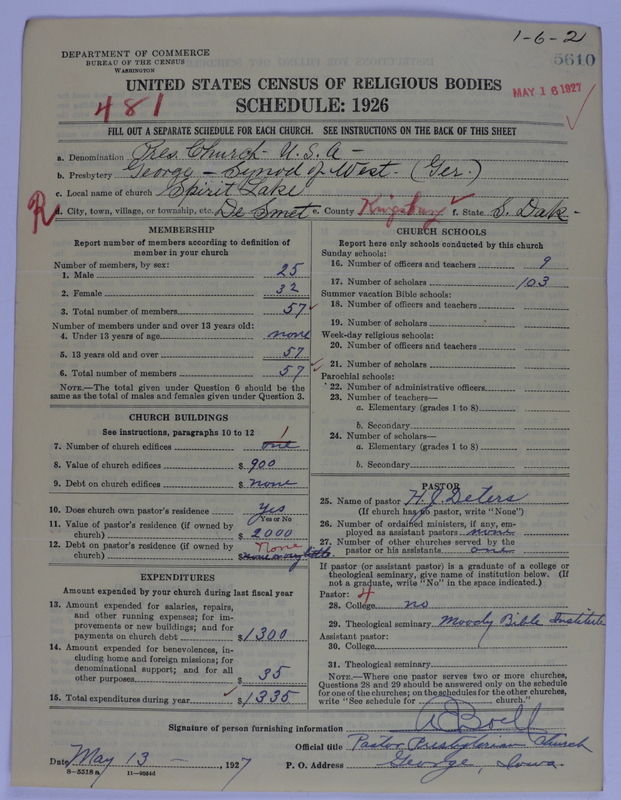 1-6-2
5610
DEPARTMENT OF COMMERCE
BUREAU OF THE CENSUS
WASHINGTON
UNITED STATES CENSUS OF RELIGIOUS BODIES
MAY 16 1927
481
SCHEDULE: 1926
FILL OUT A SEPARATE SCHEDULE FOR EACH CHURCH. SEE INSTRUCTIONS ON THE BACK OF THIS SHEET
a. Denomination Pres. Church - U.S.A -
b. Presbytery George - Synod of West. (Ger.)
c. Local name of church Spirit Lake
R
d. City, town, village, or township, etc. De Smet e. County Kingsbury f. State S. Dak -
MEMBERSHIP
Report number of members according to definition of
member in your church
Number of members, by sex:
1. Male 25
2. Female 32
3. Total number of members 57
Number of members under and over 13 years old:
4. Under 13 years of age none
5. 13 years old and over 57
6. Total number of members 57
NOTE.—The total given under Question 6 should be the
same as the total of males and females given under Question 3.
CHURCH BUILDINGS
See instructions, paragraphs 10 to 12
7. Number of church edifices one 1
8. Value of church edifices $ 900
9. Debt on church edifices $ none
10. Does church own pastor's residence? Yes
Yes or No
11. Value of pastor's residence (if owned by
church) $ 2000
12. Debt on pastor's residence (if owned by
church) $ None
EXPENDITURES
Amount expended by your church during last fiscal year
13. Amount expended for salaries, repairs,
and other running expenses; for im-
provements or new buildings; and for
payments on church debt $ 1300
14. Amount expended for benevolences, in-
cluding home and foreign missions; for
denominational support; and for all
other purposes $ 35
15. Total expenditures during year $ 1335
CHURCH SCHOOLS
Report here only schools conducted by this church
Sunday schools:
16. Number of officers and teachers 9
17. Number of scholars 103
Summer vacation Bible schools:
18. Number of officers and teachers
19. Number of scholars
Week-day religious schools:
20. Number of officers and teachers
21. Number of scholars
Parochial schools:
22. Number of administrative officers
23. Number of teachers—
a. Elementary (grades 1 to 8)
b. Secondary
24. Number of scholars—
a. Elementary (grades 1 to 8)
b. Secondary
PASTOR
25. Name of pastor H. J. Deters
(If church has no pastor, write "None")
26. Number of ordained ministers, if any, em-
ployed as assistant pastors none
27. Number of other churches served by the
pastor or his assistants one
If pastor (or assistant pastor) is a graduate of a college or
theological seminary, give name of institution below. (If
not a graduate, write "No" in the space indicated.)
Pastor: 4
28. College no
29. Theological seminary Moody Bible Institute
Assistant pastor:
30. College
31. Theological seminary
NOTE.—Where one pastor serves two or more churches,
Questions 28 and 29 should be answered only on the schedule
for one of the churches; on the schedules for the other churches,
write "See schedule for church."
Signature of person furnishing information A Boell
Official title Pastor Presbyterian Church
Date May 13 -, 1927 P. O. Address George, Iowa.
8-5518a 11-9284d